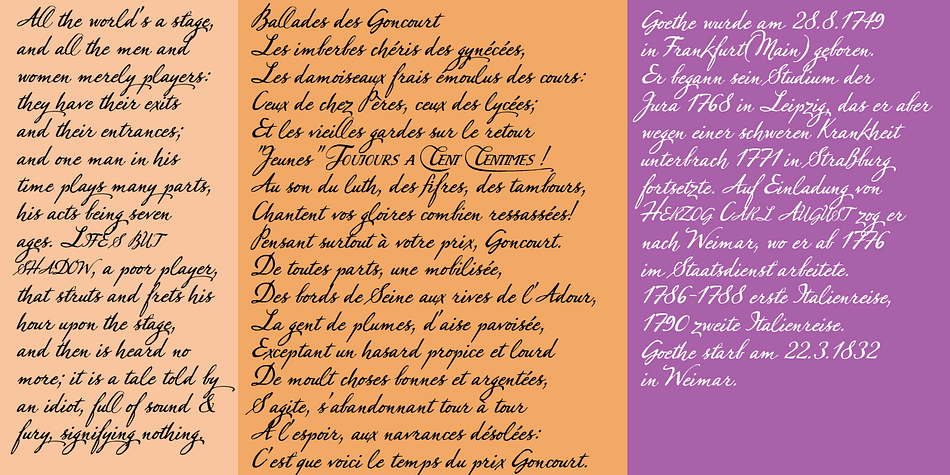 All the world's a stage,
and all the men and
women merely players:
they have their exits
and their entrances;
and one man in his
time plays many parts,
his acts being seven
ages. LIFE'S BUT
SHADOW, a poor player,
that struts and frets his
hour upon the stage,
and then is heard no
more; it is a tale told by
an idiot, full of sound &
fury, signifying nothing.
Ballades des Goncourt
Les imberbes chéris des gynécées,
Les damoiseaux frais émoulus des cours:
Ceux de chez Pères, ceux des lycées;
Et les vieilles gardes sur le retour
"Jeunes" TOUJOURS A CENT CENTIMES !
Au son du luth, des fifres, des tambours,
Chantent vos gloires combien ressassées!
Pensant surtout à votre prix, Goncourt.
De toutes parts, une mobilisée,
Des bords de Seine aux rives de l'Adour,
La gent de plumes, d'aise pavoisée,
Exceptant un hasard propice et lourd
De moult choses bonnes et argentées,
S'agite, s'abandonnant tour à tour
A l'espoir, aux navrances désolées:
C'est que voici le temps du prix Goncourt.
Goethe wurde am 28.8.1749
in Frankfurt(Main) geboren.
Er begann sein Studium der
Jura 1768 in Leipzig, das er aber
wegen einer schweren Krankheit
unterbrach 1771 in Straßburg
fortsetzte. Auf Einladung von
HERZOG CARL AUGUST zog er
nach Weimar, wo er ab 1776
im Staatsdienst arbeitete.
1786-1788 erste Italienreise,
1790 zweite Italienreise.
Goethe starb am 22.3.1832
in Weimar.